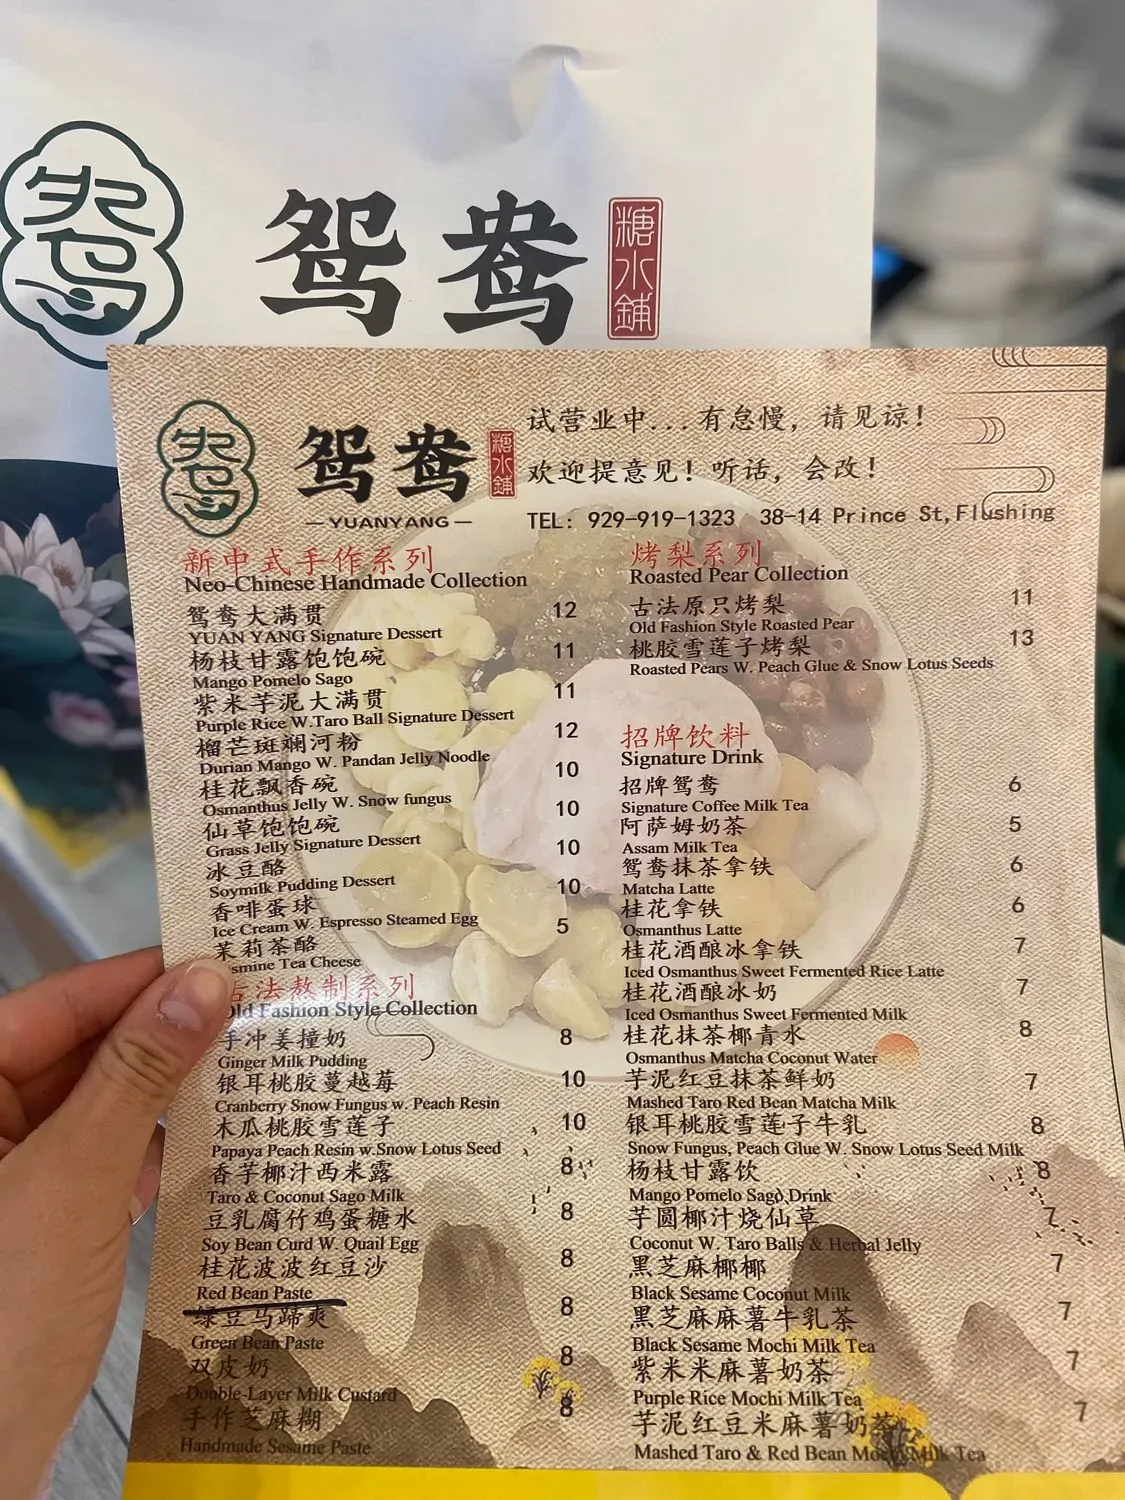 鸳鸯
糖水鋪
鸳鸯
糖水鋪
—YUANYANG—
试营业中...有怠慢，请见谅！
欢迎提意见！听话，会改！
TEL: 929-919-1323 38-14 Prince St,Flushing
新中式手作系列
Neo-Chinese Handmade Collection
鸳鸯大满贯 12
YUAN YANG Signature Dessert
杨枝甘露饱饱碗 11
Mango Pomelo Sago
紫米芋泥大满贯 11
Purple Rice W.Taro Ball Signature Dessert
榴芒斑斓河粉 12
Durian Mango W. Pandan Jelly Noodle
桂花飘香碗 10
Osmanthus Jelly W. Snow fungus
仙草饱饱碗 10
Grass Jelly Signature Dessert
冰豆酪 10
Soymilk Pudding Dessert
香啡蛋球 10
Ice Cream W. Espresso Steamed Egg
茉莉茶酪 5
smine Tea Cheese
古法熬制系列
Old Fashion Style Collection
手冲姜撞奶 8
Ginger Milk Pudding
银耳桃胶蔓越莓 10
Cranberry Snow Fungus w. Peach Resin
木瓜桃胶雪莲子 10
Papaya Peach Resin w.Snow Lotus Seed
香芋椰汁西米露 8
Taro & Coconut Sago Milk
豆乳腐竹鸡蛋糖水 8
Soy Bean Curd W. Quail Egg
桂花波波红豆沙 8
Red Bean Paste
绿豆马蹄爽 8
Green Bean Paste
双皮奶 8
Double-Layer Milk Custard
手作芝麻糊 8
Handmade Sesame Paste
烤梨系列
Roasted Pear Collection
古法原只烤梨 11
Old Fashion Style Roasted Pear
桃胶雪莲子烤梨 13
Roasted Pears W. Peach Glue & Snow Lotus Seeds
招牌饮料
Signature Drink
招牌鸳鸯 6
Signature Coffee Milk Tea
阿萨姆奶茶 5
Assam Milk Tea
鸳鸯抹茶拿铁 6
Matcha Latte
桂花拿铁 6
Osmanthus Latte
桂花酒酿冰拿铁 7
Iced Osmanthus Sweet Fermented Rice Latte
桂花酒酿冰奶 7
Iced Osmanthus Sweet Fermented Milk
桂花抹茶椰青水 8
Osmanthus Matcha Coconut Water
芋泥红豆抹茶鲜奶 7
Mashed Taro Red Bean Matcha Milk
银耳桃胶雪莲子牛乳 8
Snow Fungus, Peach Glue W. Snow Lotus Seed Milk
杨枝甘露饮 8
Mango Pomelo Sago Drink
芋圆椰汁烧仙草 7
Coconut W. Taro Balls & Herbal Jelly
黑芝麻椰椰 7
Black Sesame Coconut Milk
黑芝麻麻薯牛乳茶 7
Black Sesame Mochi Milk Tea
紫米米麻薯奶茶 7
Purple Rice Mochi Milk Tea
芋泥红豆米麻薯奶茶 7
Mashed Taro & Red Bean Mochi Milk Tea